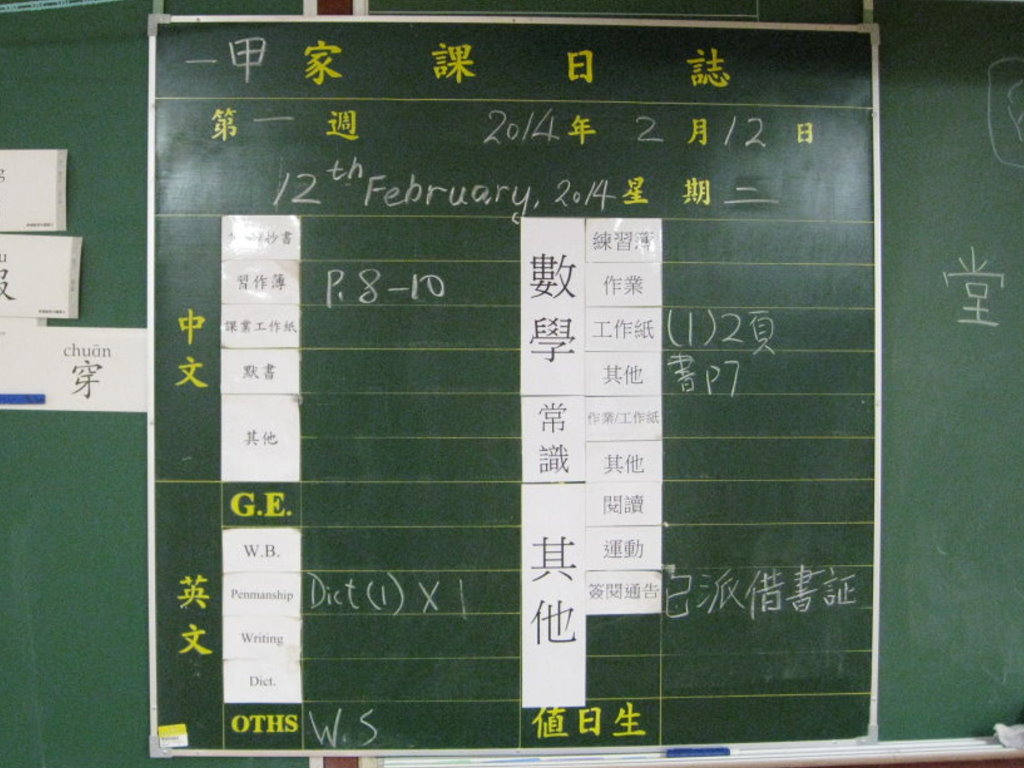 一甲 家 課 日 誌
第 一 週 2014 年 2 月 12 日
12th February, 2014 星 期 二
中文
抄書
習作簿 P. 8-10
課業工作紙
默書
其他
英文
G.E.
W.B.
Penmanship Dict(1) X 1
Writing
Dict.
OTHS W.S
數學
練習簿
作業
工作紙 (1)2頁
其他 書P7
常識
作業/工作紙
其他
其他
閱讀
運動
簽閱通告 已派借書証
值日生
chuān
穿
堂